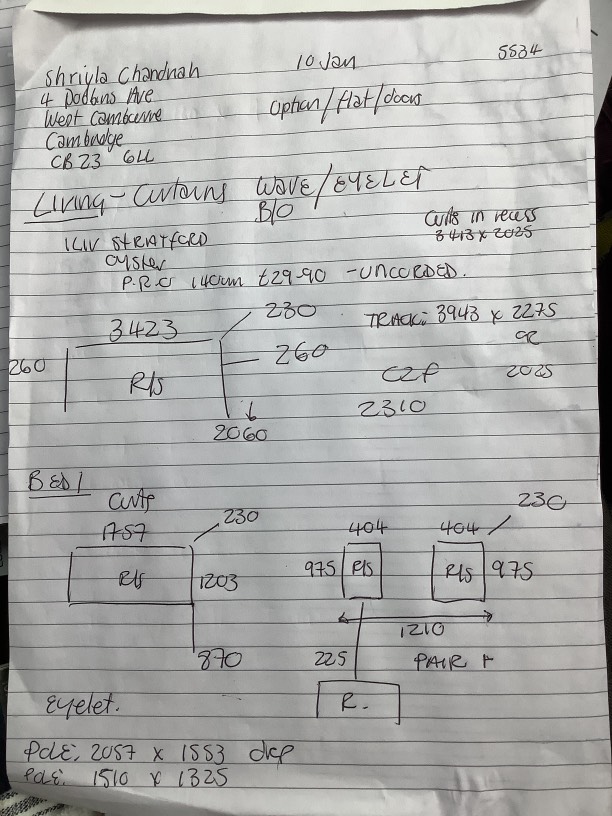 10 Jan
5534
Shriyla Chandnah
4 Dodbns Ave
West Cambourne
Cambridge
CB23 6LL
option / flat / doors
Living - Curtains WAVE / EYELET
B/O
Curts in recess
3413 x 2025
ILIV STRATFORD
Oyster
P.R.O 140cm £29-90 - UNCORDED.
3423
230
TRACK: 3943 x 2275
OR
260
R/S
260
C2F
2025
2310
2060
BED 1
Curts
1757
230
404
404
230
R/S
1203
975
R/S
R/S
975
1210
870
225
PAIR +
R.
Eyelet.
POLE: 2057 x 1553 drp
POLE: 1510 x 1325